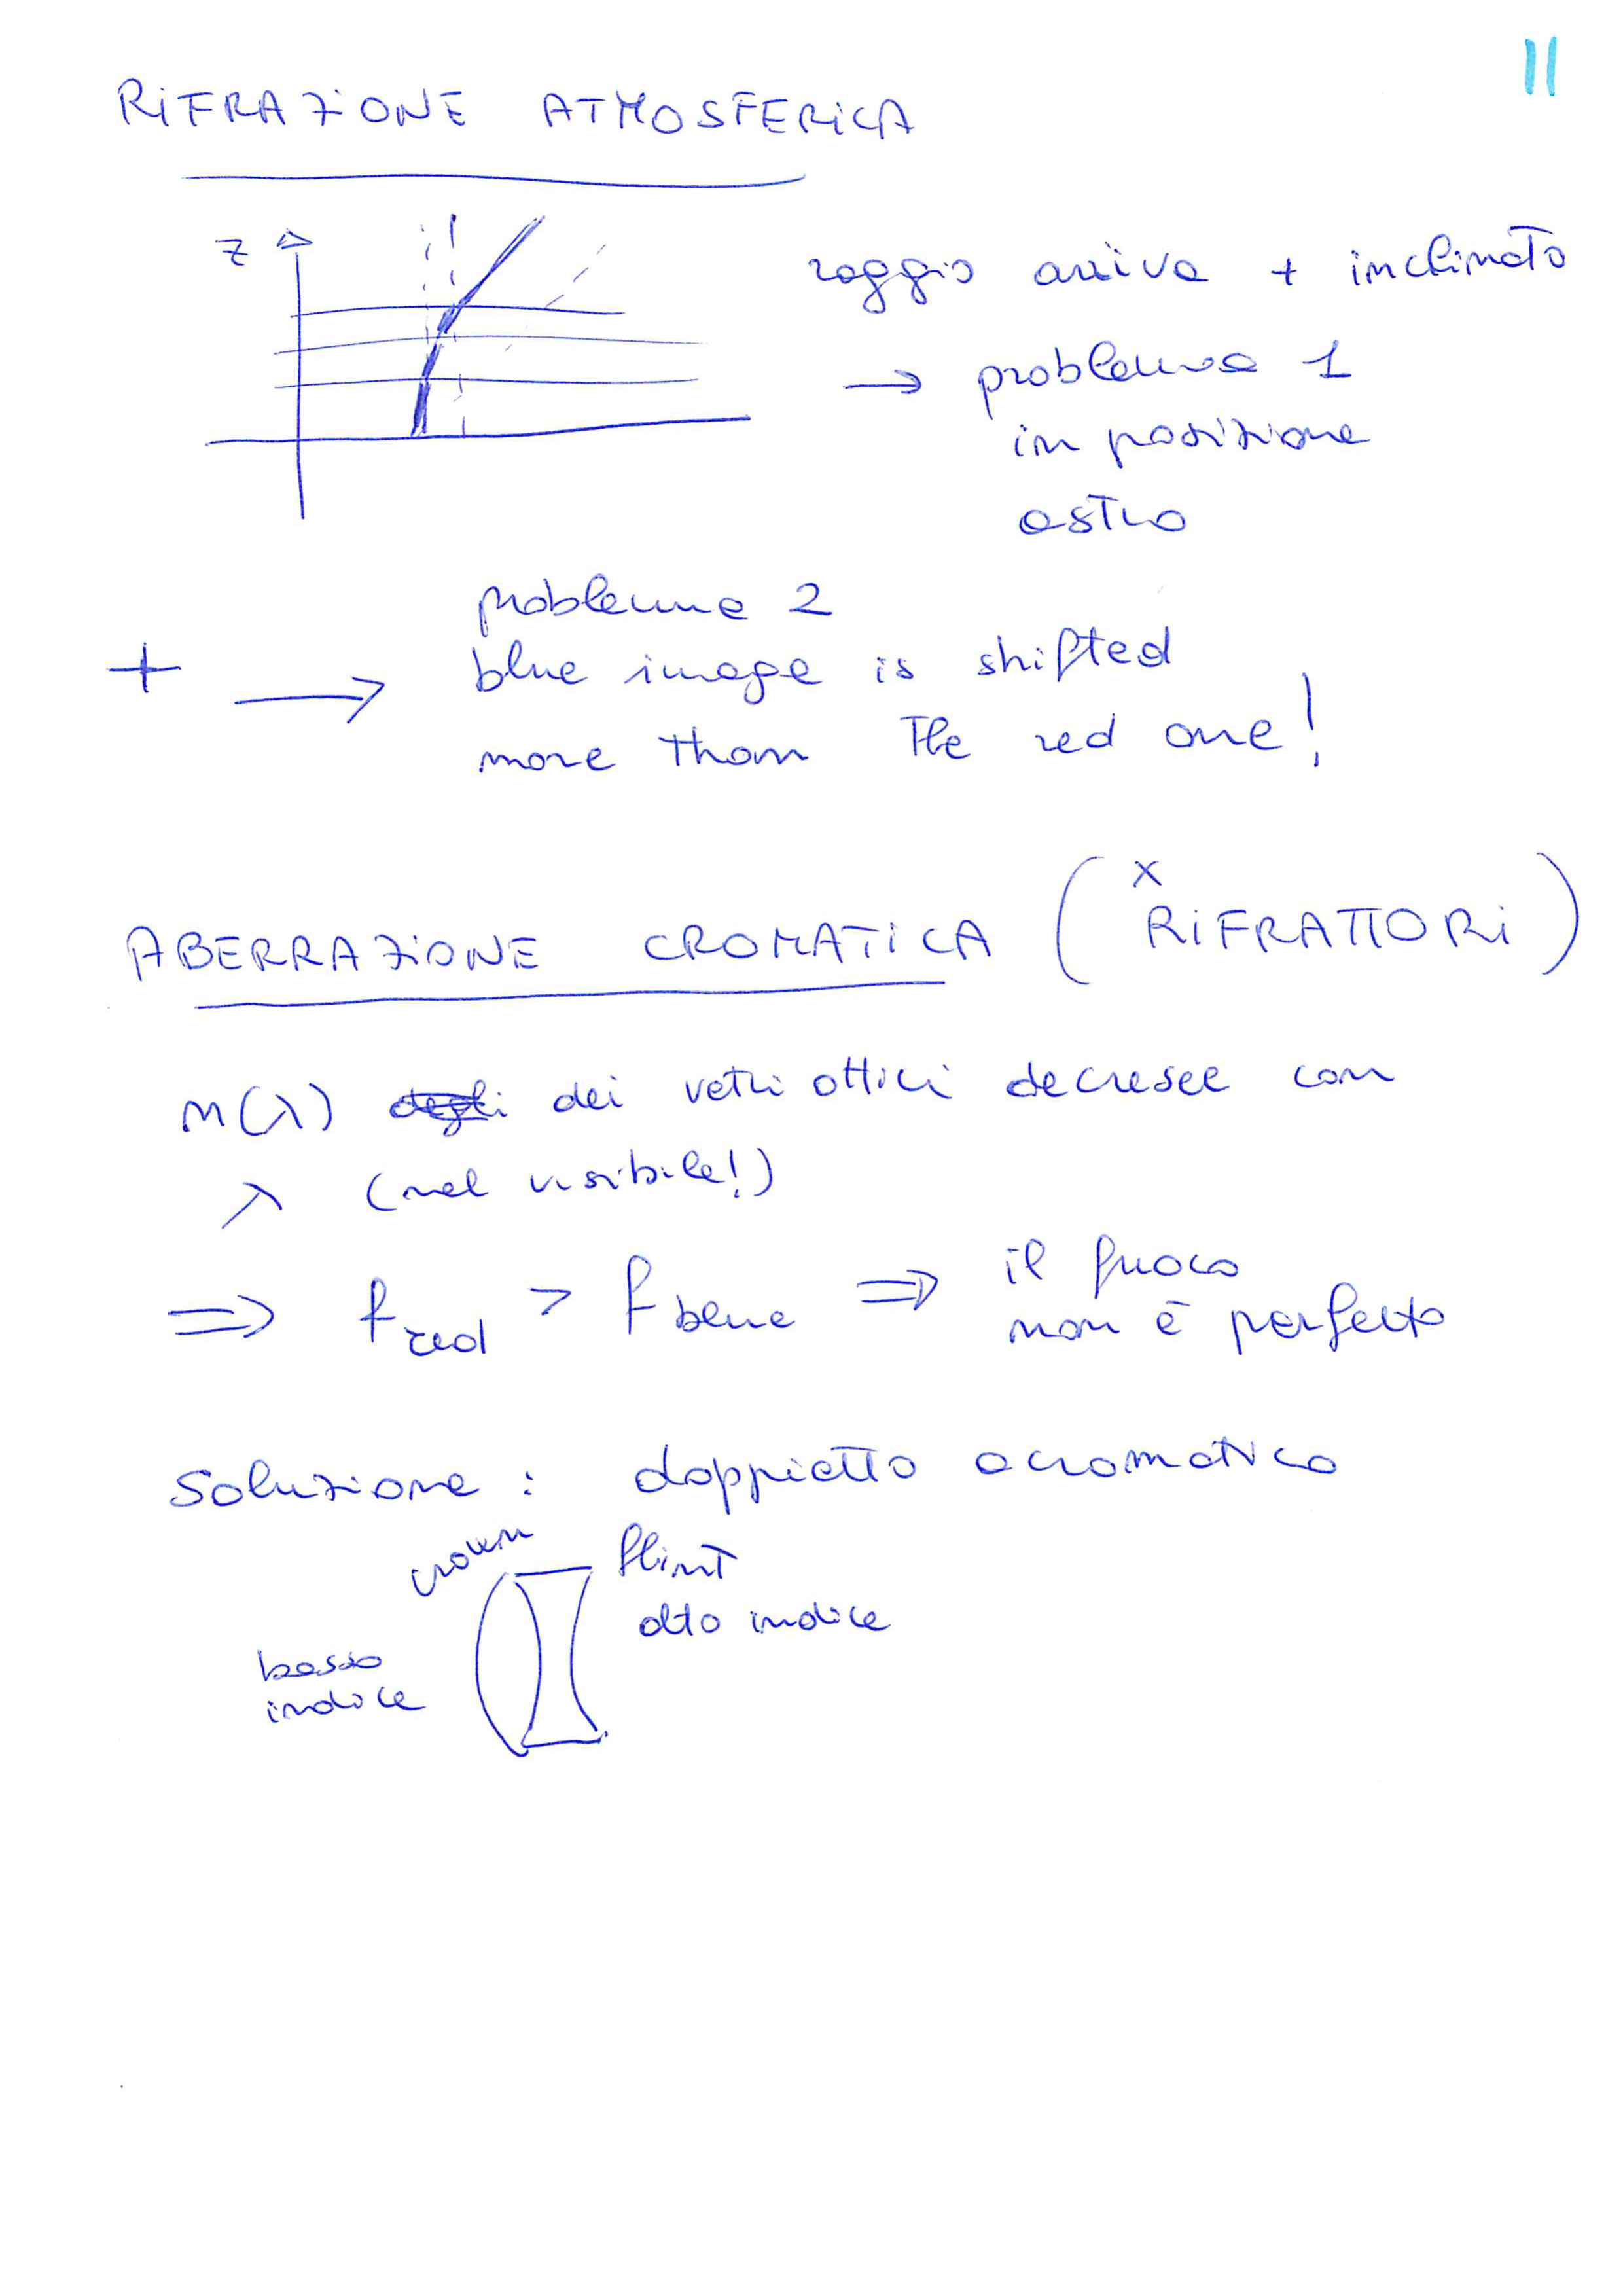 11
RIFRAZIONE ATMOSFERICA
z
raggio arriva + inclinato
→ problema 1
in posizione
astro
problema 2
+ → blue image is shifted
more than the red one!
ABERRAZIONE CROMATICA ( x RIFRATTORI )
n(λ) degli dei vetri ottici decresce con
λ (nel visibile!)
⇒ f red > f blue ⇒ il fuoco
non è perfetto
soluzione : doppietto acromatico
crown flint
alto indice
basso
indice